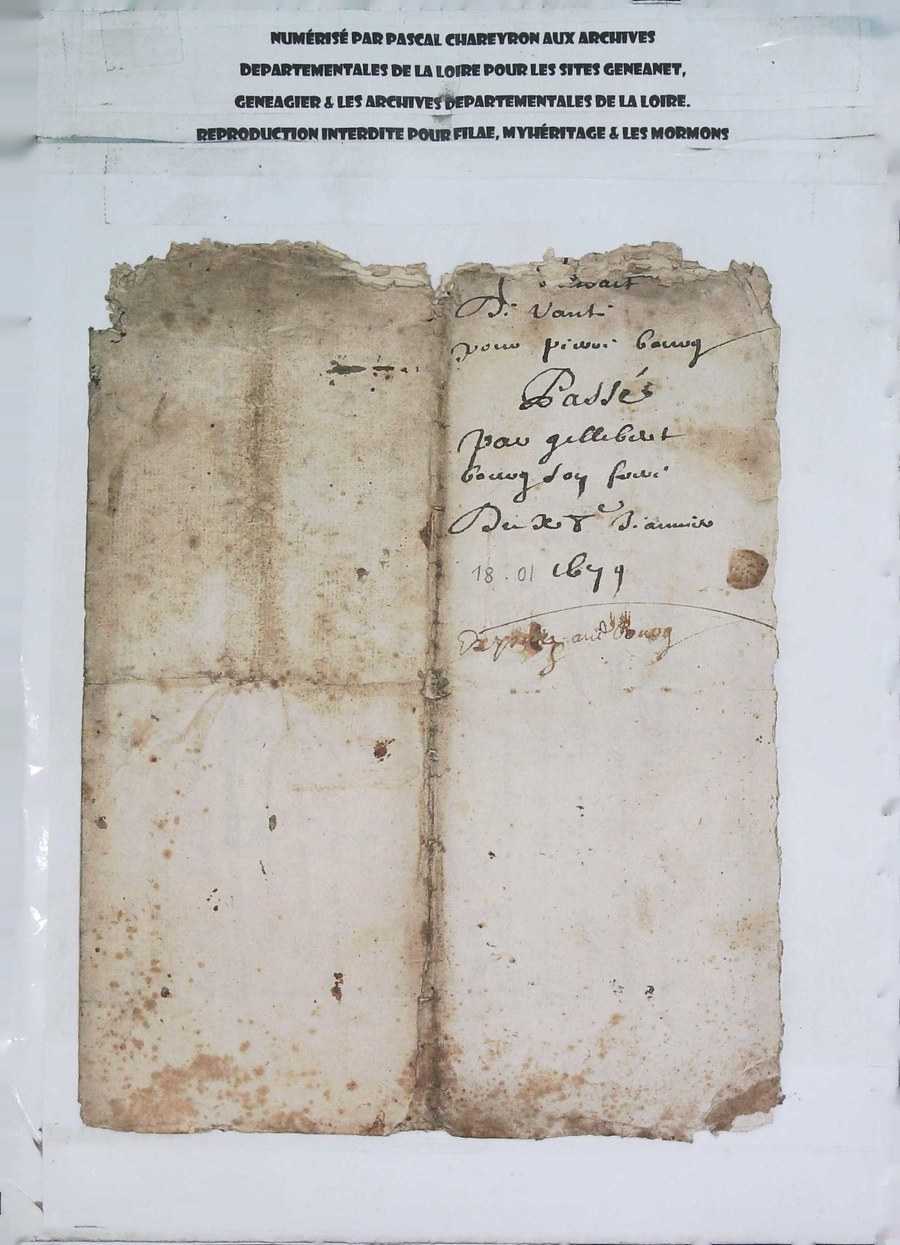 NUMÉRISÉ PAR PASCAL CHAREYRON AUX ARCHIVES
DEPARTEMENTALES DE LA LOIRE POUR LES SITES GENEANET,
GENEAGIER & LES ARCHIVES DEPARTEMENTALES DE LA LOIRE.
REPRODUCTION INTERDITE POUR FILAE, MYHÉRITAGE & LES MORMONS
De vante
pour pierre bourg
Passés
par gilleberet
bourg son frere
Du x8e Janvier
18.01 1679
bourg